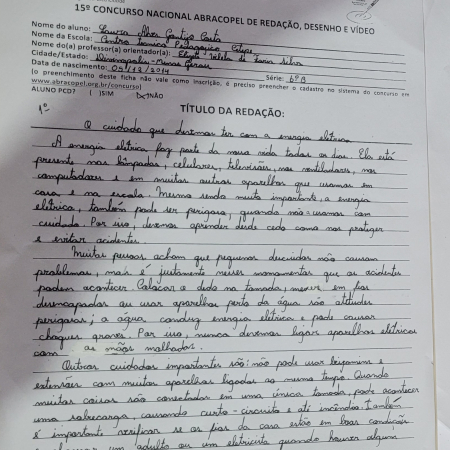 15º CONCURSO NACIONAL ABRACOPEL DE REDAÇÃO, DESENHO E VÍDEO
Nome do aluno: Laura Alves Costa
Nome da Escola: Centro Técnico Pedagógico
Nome do(a) professor(a) orientador(a): Silva
Cidade/Estado: Divinópolis - Minas Gerais
Data de nascimento: 05/12/2014 Série: 6ºB
(o preenchimento deste ficha não vale como inscrição, é preciso preencher o cadastro no sistema do concurso em
www.abracopel.org.br/concurso)
ALUNO PCD? ( )SIM (X)NÃO
1º
TÍTULO DA REDAÇÃO:
O cuidado que devemos ter com a energia elétrica
A energia elétrica faz parte da nossa vida todos os dias. Ela está
presente nas lâmpadas, celulares, televisões, nos ventiladores, nos
computadores e em muitos outros aparelhos que usamos em
casa e na escola. Mesmo sendo muito importante, a energia
elétrica, também pode ser perigosa, quando não usamos com
cuidado. Por isso, devemos aprender desde cedo como nos proteger
e evitar acidentes.
Muitas pessoas acham que pequenos descuidos não causam
problemas, mais é justamente nesses momentos que os acidentes
podem acontecer. Colocar o dedo na tomada, mexer em fios
desencapados ou usar aparelhos perto da água são atitudes
perigosas; a água conduz energia elétrica e pode causar
choques graves. Por isso, nunca devemos ligar aparelhos elétricos
com as mãos molhadas.
Outros cuidados importantes são: não pode usar benjamins e
extensões com muitos aparelhos ligados ao mesmo tempo. Quando
muitas coisas são conectadas em uma única tomada, pode acontecer
uma sobrecarga, causando curto-circuito e até incêndio. Também
é importante verificar se os fios da casa estão em boas condições
e chamar um adulto ou um eletricista quando houver algum